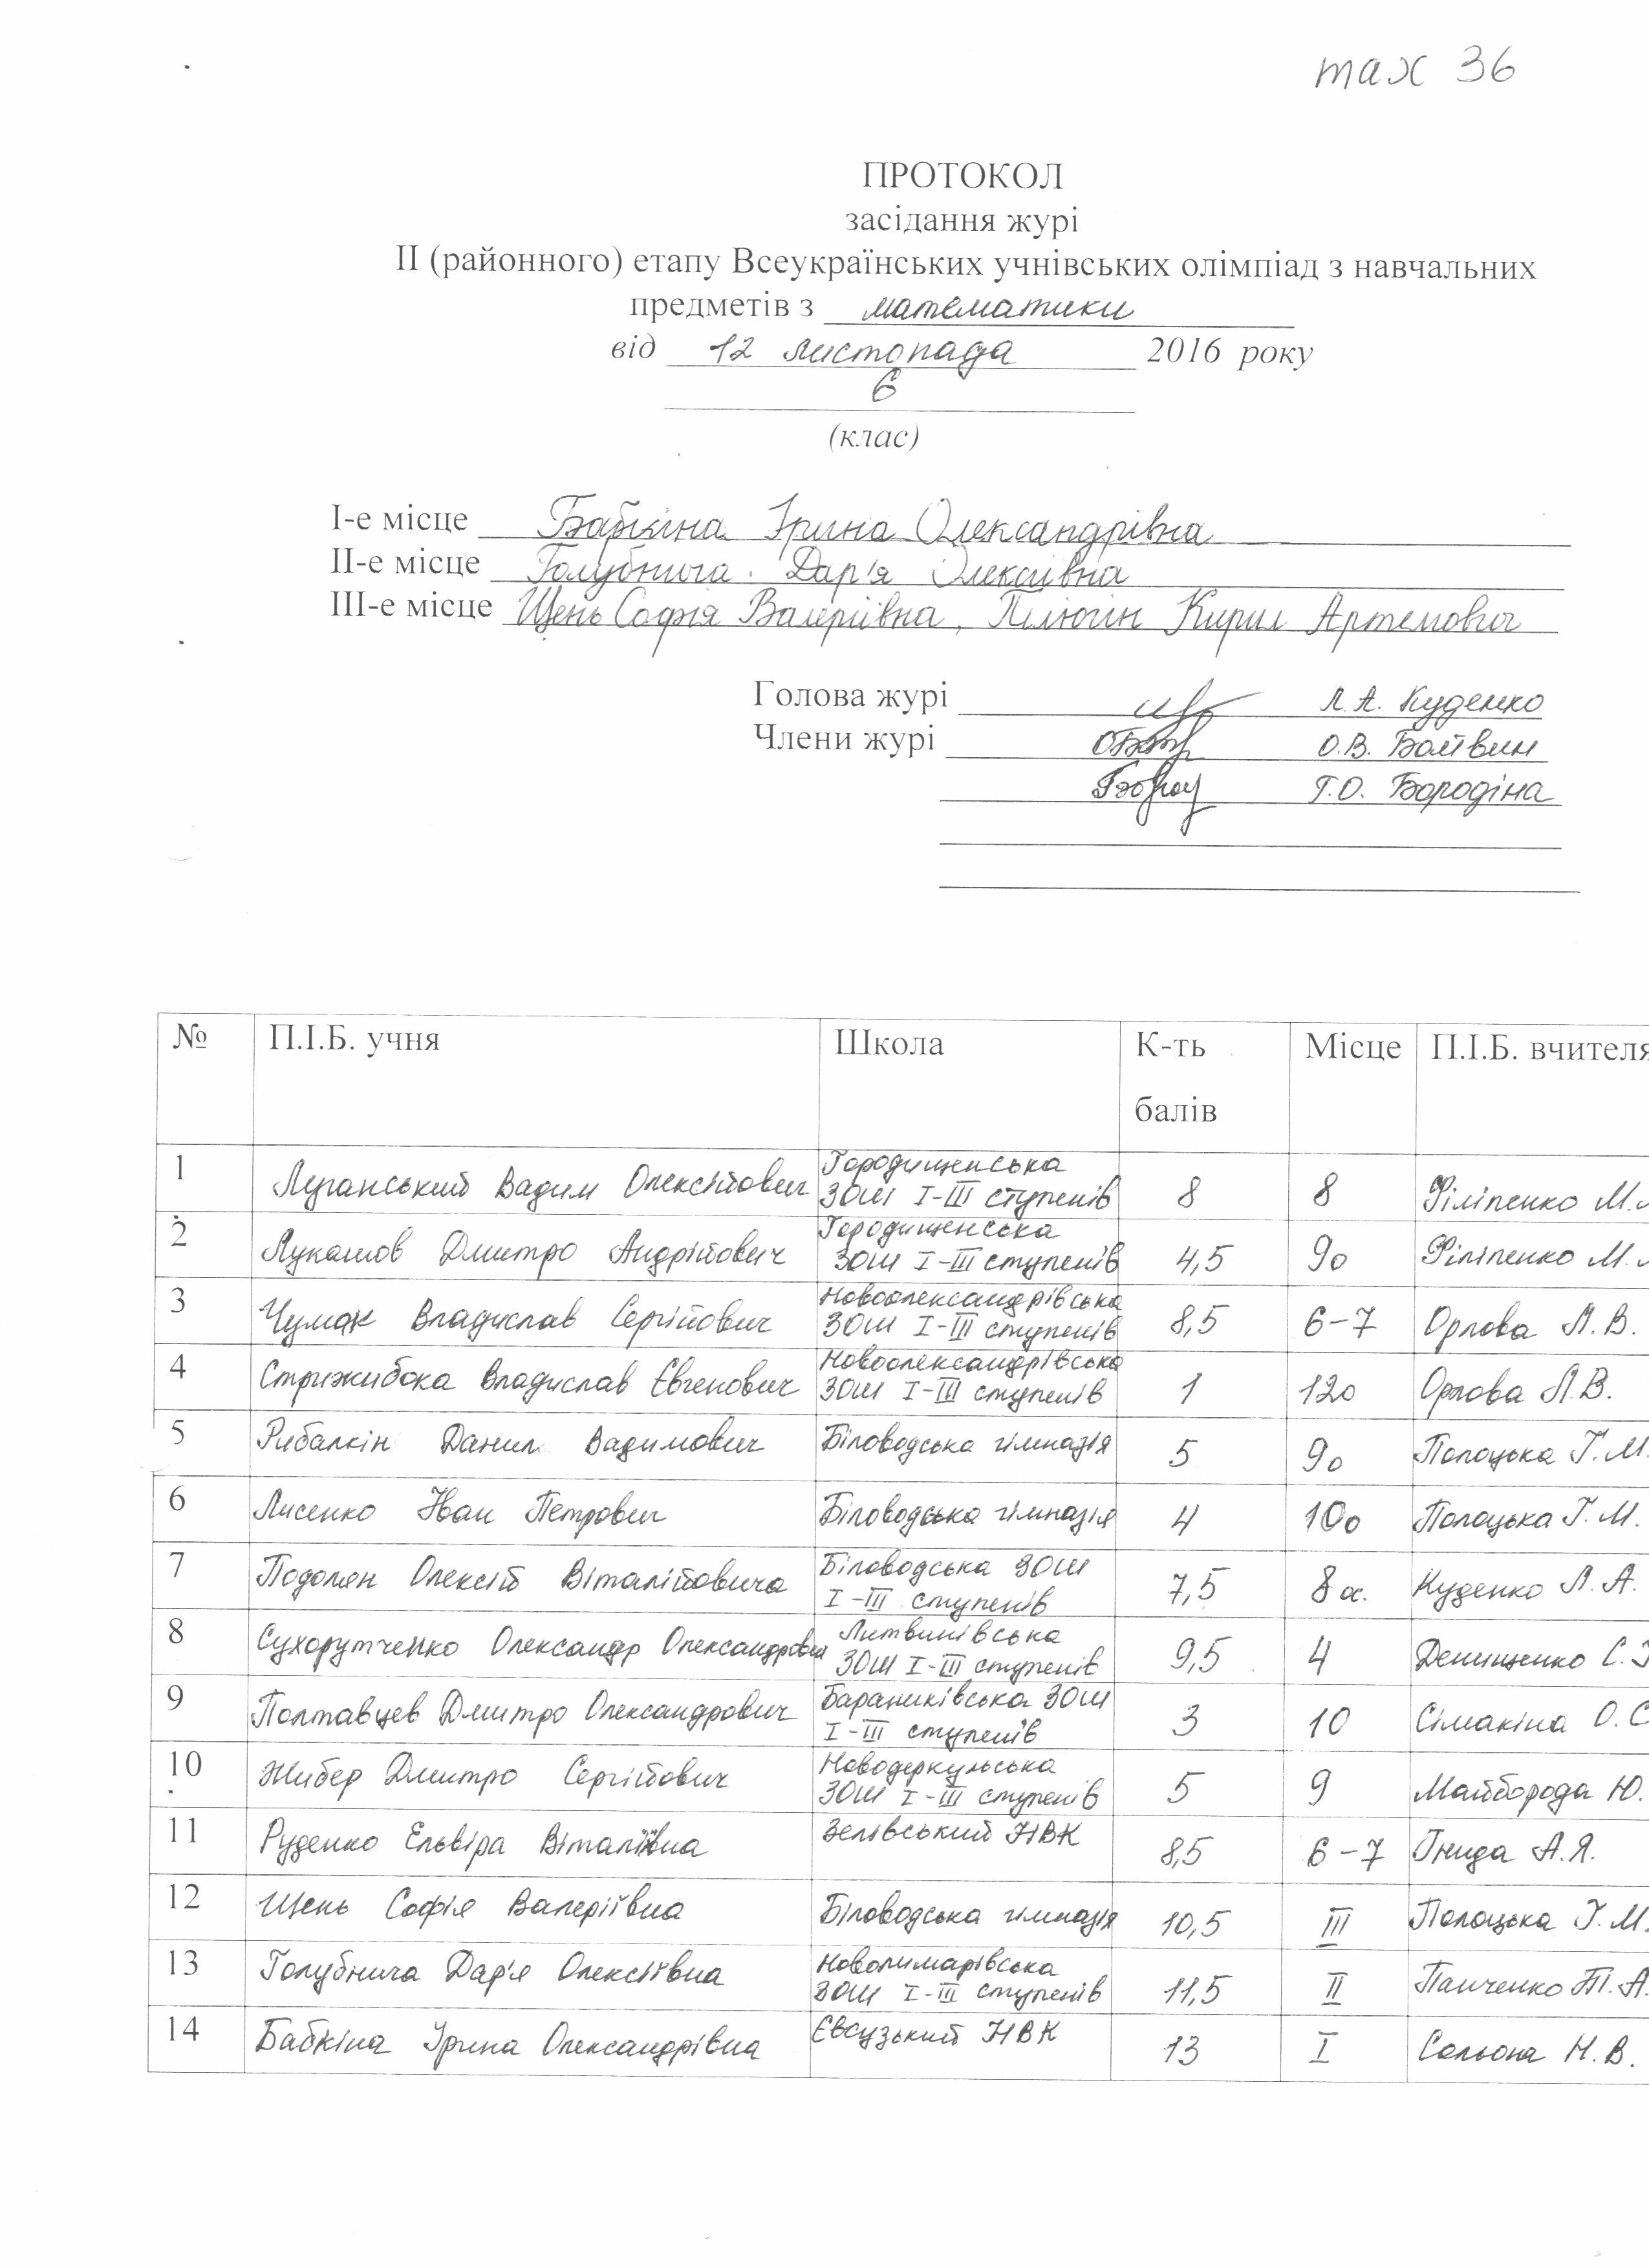 max 36
ПРОТОКОЛ
засідання журі
ІІ (районного) етапу Всеукраїнських учнівських олімпіад з навчальних
предметів з математики
від 12 листопада 2016 року
6
(клас)
І-е місце Бабкіна Ірина Олександрівна
ІІ-е місце Голубнича Дар'я Олексіївна
ІІІ-е місце Щень Софія Валеріївна, Пілюгін Кирил Артемович
Голова журі Л.А. Куденко
Члени журі О.В. Бойвин
Г.О. Бородіна
№ П.І.Б. учня Школа К-ть балів Місце П.І.Б. вчителя
1 Луганський Вадим Олексійович Городищенська ЗОШ І-ІІІ ступенів 8 8 Філіпенко М.
2 Лукашов Дмитро Андрійович Городищенська ЗОШ І-ІІІ ступенів 4,5 9о Філіпенко М.
3 Чумак Владислав Сергійович Новоолександрівська ЗОШ І-ІІІ ступенів 8,5 6-7 Орлова Л.В.
4 Стрижибока Владислав Євгенович Новоолександрівська ЗОШ І-ІІІ ступенів 1 12о Орлова Л.В.
5 Рибалкін Данил Вадимович Біловодська гімназія 5 9о Полоцька Г.М.
6 Лисенко Іван Петрович Біловодська гімназія 4 10о Полоцька Г.М.
7 Подолян Олексій Віталійовича Біловодська ЗОШ І-ІІІ ступенів 7,5 8 Куденко Л.А.
8 Сухорутченко Олександр Олександрович Литвинівська ЗОШ І-ІІІ ступенів 9,5 4 Денищенко С.
9 Полтавцев Дмитро Олександрович Бараниківська ЗОШ І-ІІІ ступенів 3 10 Сімакіна О.С
10 Жибер Дмитро Сергійович Новодеркульська ЗОШ І-ІІІ ступенів 5 9 Майборода Ю.
11 Руденко Ельвіра Віталіївна Зелівський НВК 8,5 6-7 Гнида А.Я.
12 Щень Софія Валеріївна Біловодська гімназія 10,5 ІІІ Полоцька Г.М.
13 Голубнича Дар'я Олексіївна Новолимарівська ЗОШ І-ІІІ ступенів 11,5 ІІ Панченко Т.А.
14 Бабкіна Ірина Олександрівна Євсузький НВК 13 І Сольона Н.В.